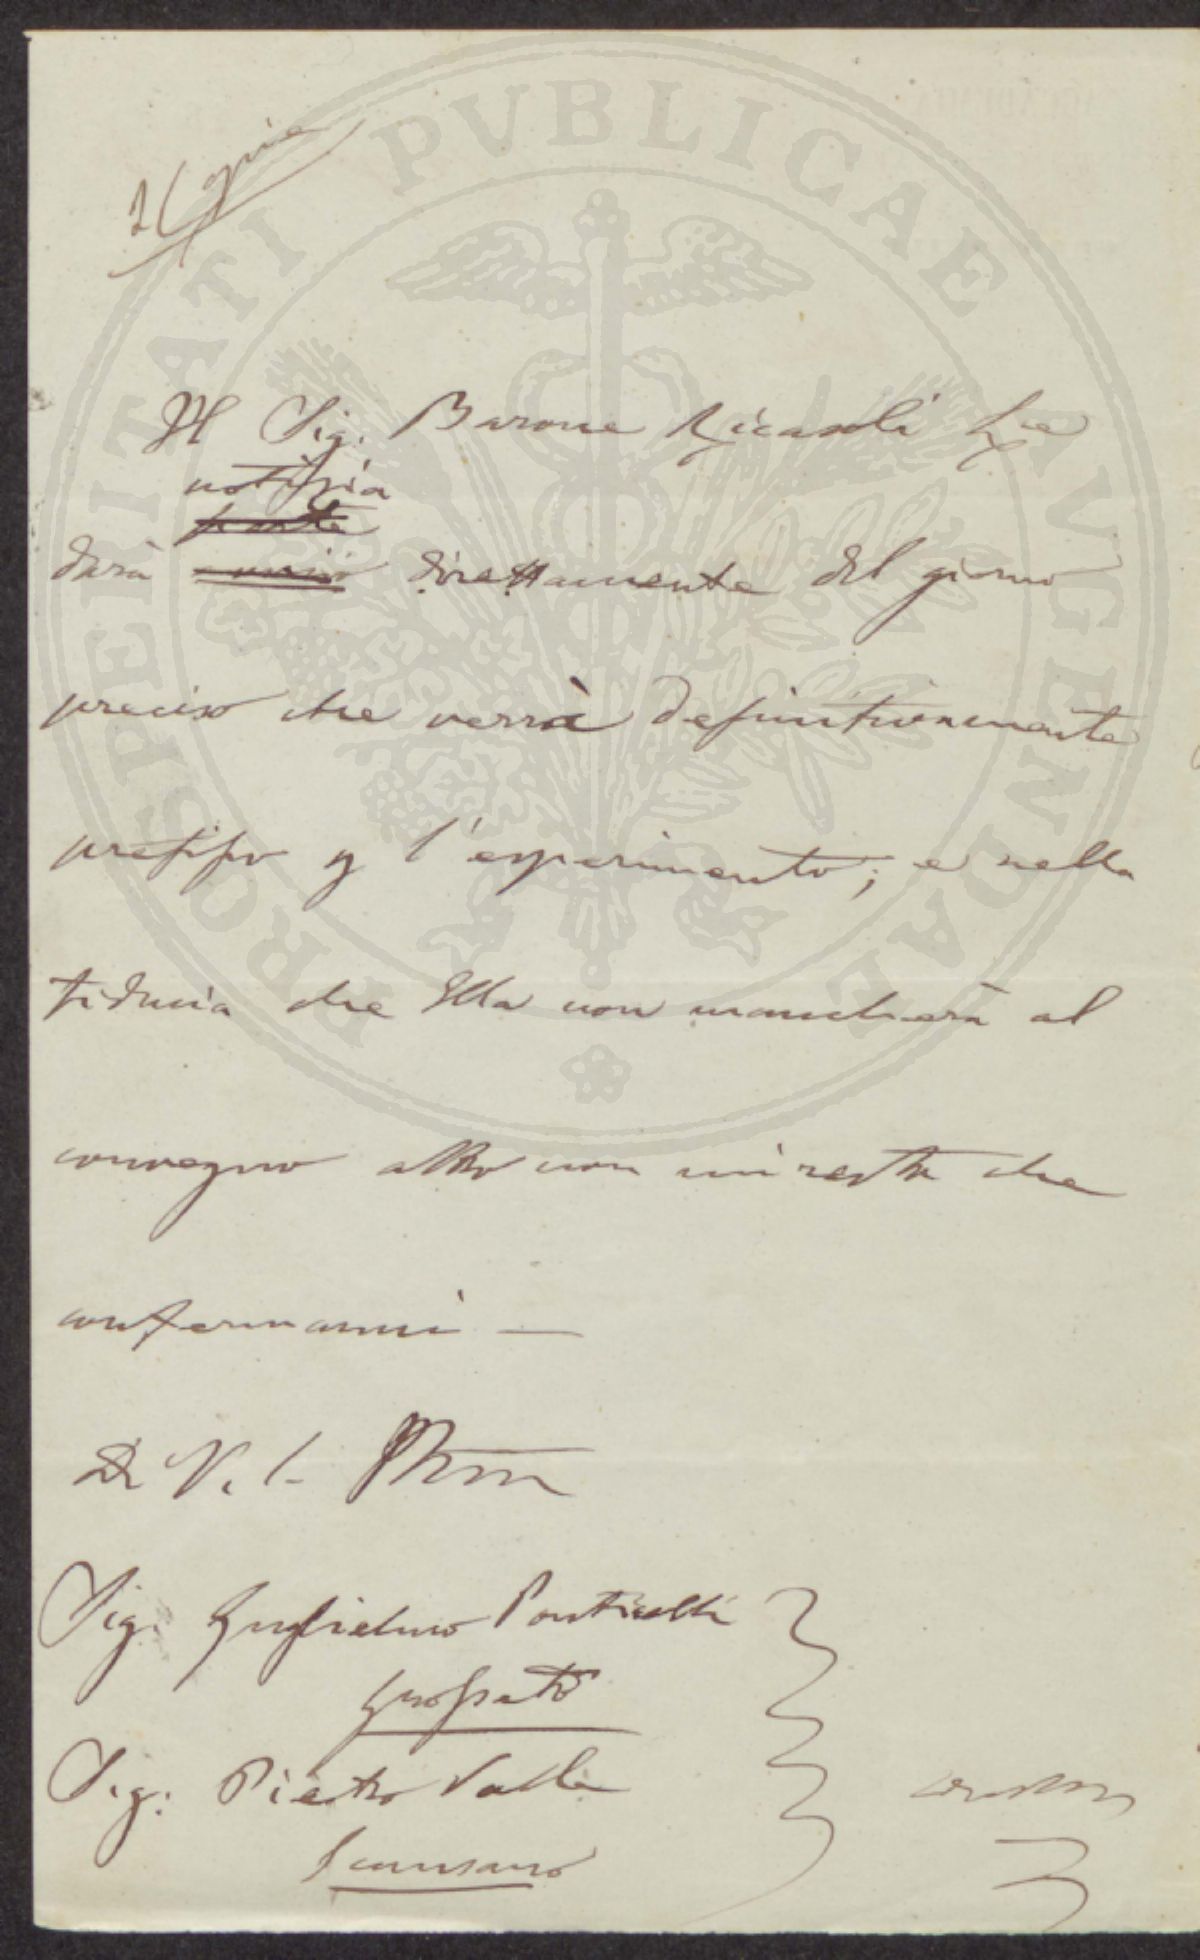 PROSPERITATI PUBLICAE AUGENDAE
Il Sig. Barone Ricasoli Le
notizia
darà direttamente del giorno
preciso che verrà definitivamente
prefisso p l'esperimento; e nella
fiducia che Ella non mancherà al
convegno altro non mi resta che
confermarmi —
Di V. S.
Sig. Guglielmo Ponticelli
Grosseto
Sig: Pietro Valle
Scansano